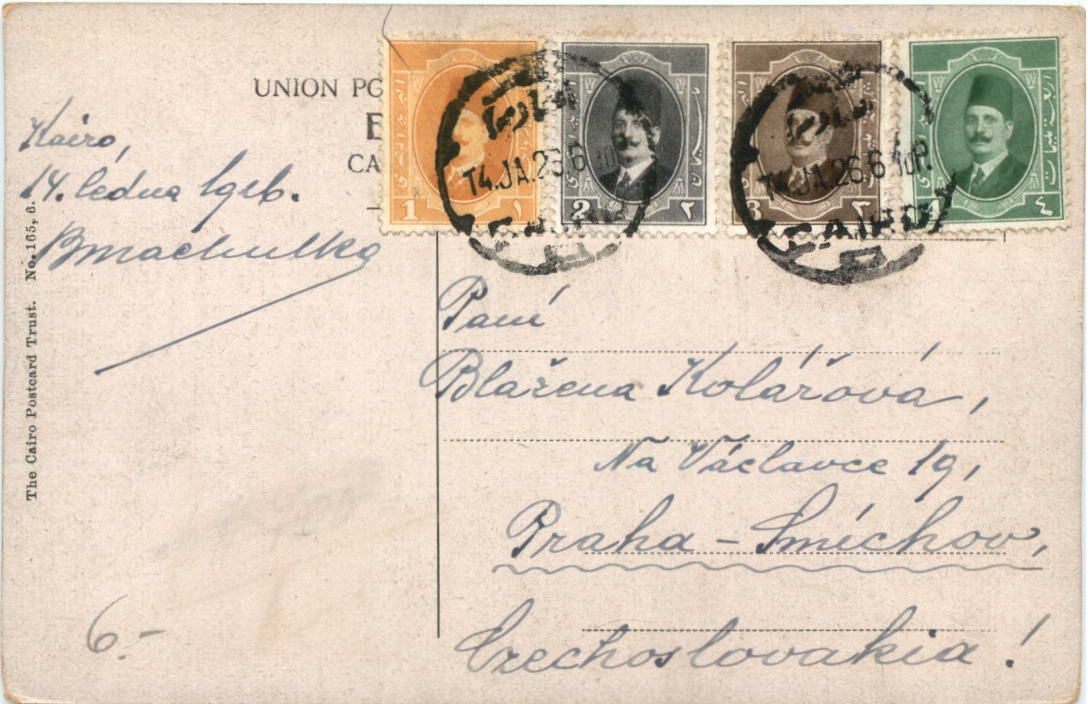 UNION PO
E
CA
Kairo,
14. ledna 1926.
BMachulka
The Cairo Postcard Trust. No. 165, 6.
1 ١
2 ٢
3
4 ٤
14.JA.26.6
CAIRO
14.JA.26.6 10P.
CAIRO
Paní
Blažena Kolářová,
Na Václavce 19,
Praha – Smíchov,
Czechoslovakia!
6.-